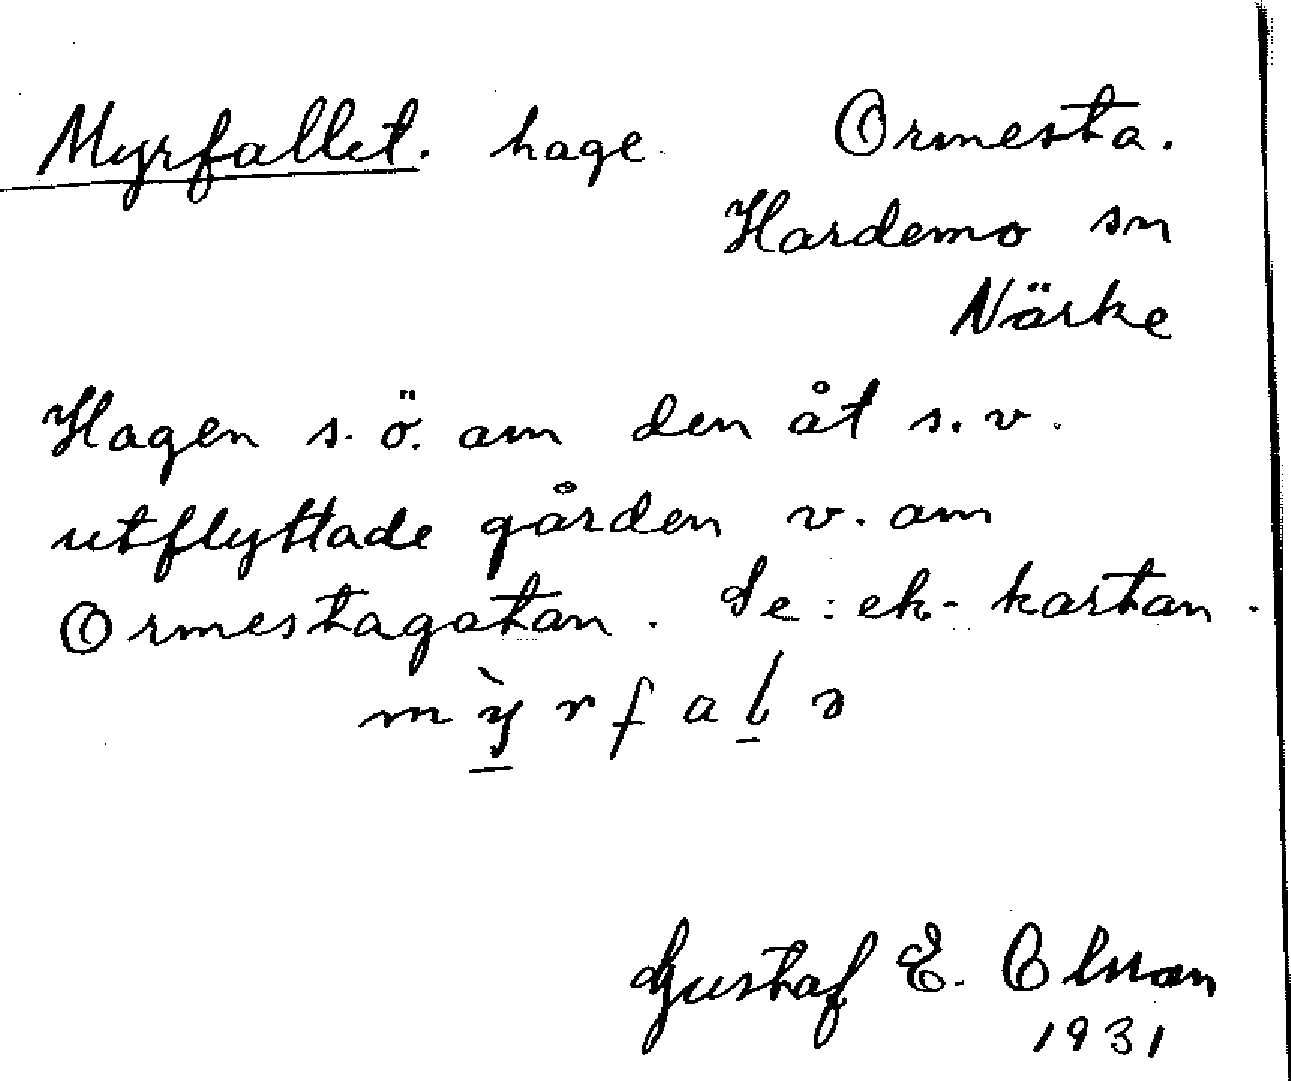 Myrfallet. hage. Ormesta.
Hardemo sn
Närke
Hagen s.ö. om den åt s.v.
utflyttade gården v. om
Ormestagatan. Se: ek-kartan.
mỳ̱rfaḻə
Gustaf E. Olsson
1931